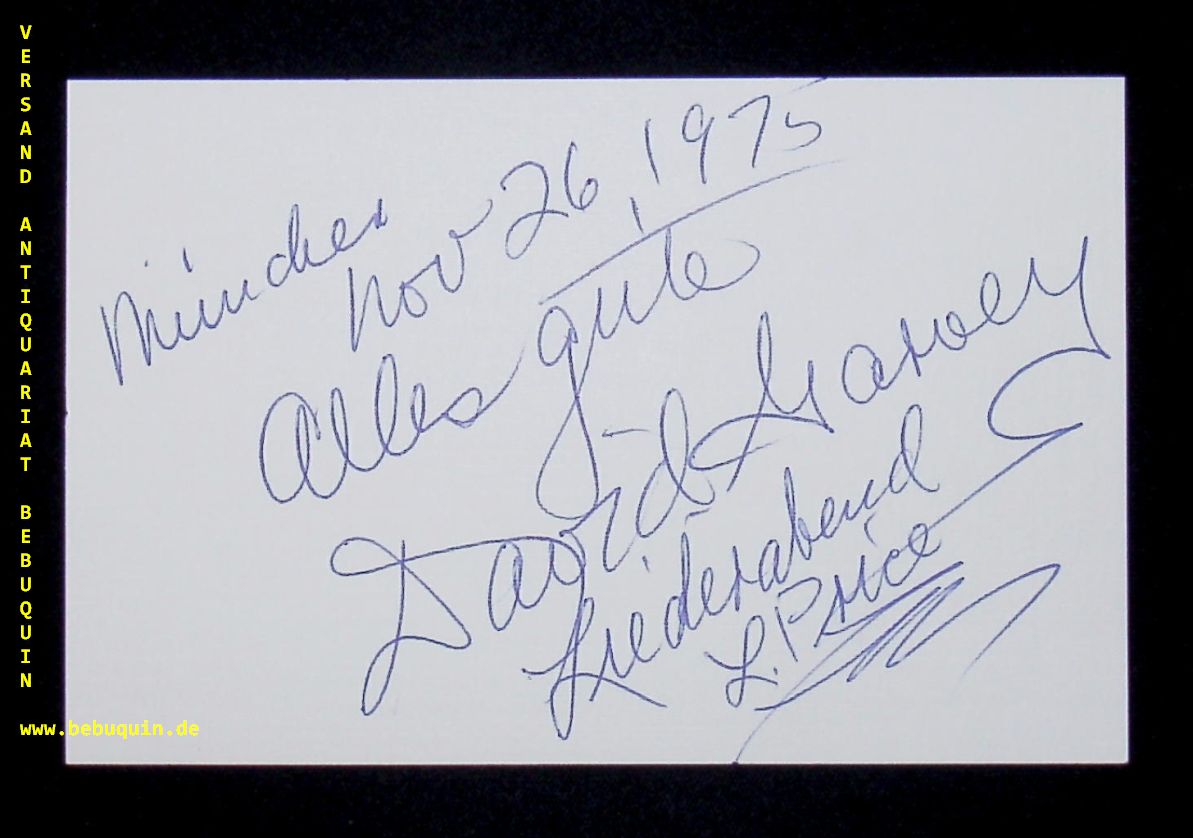 VERSAND ANTIQUARIAT BEBUQUIN
www.bebuquin.de
München
Nov 26, 1975
Alles gute
David Garvey
Liederabend
L. Price